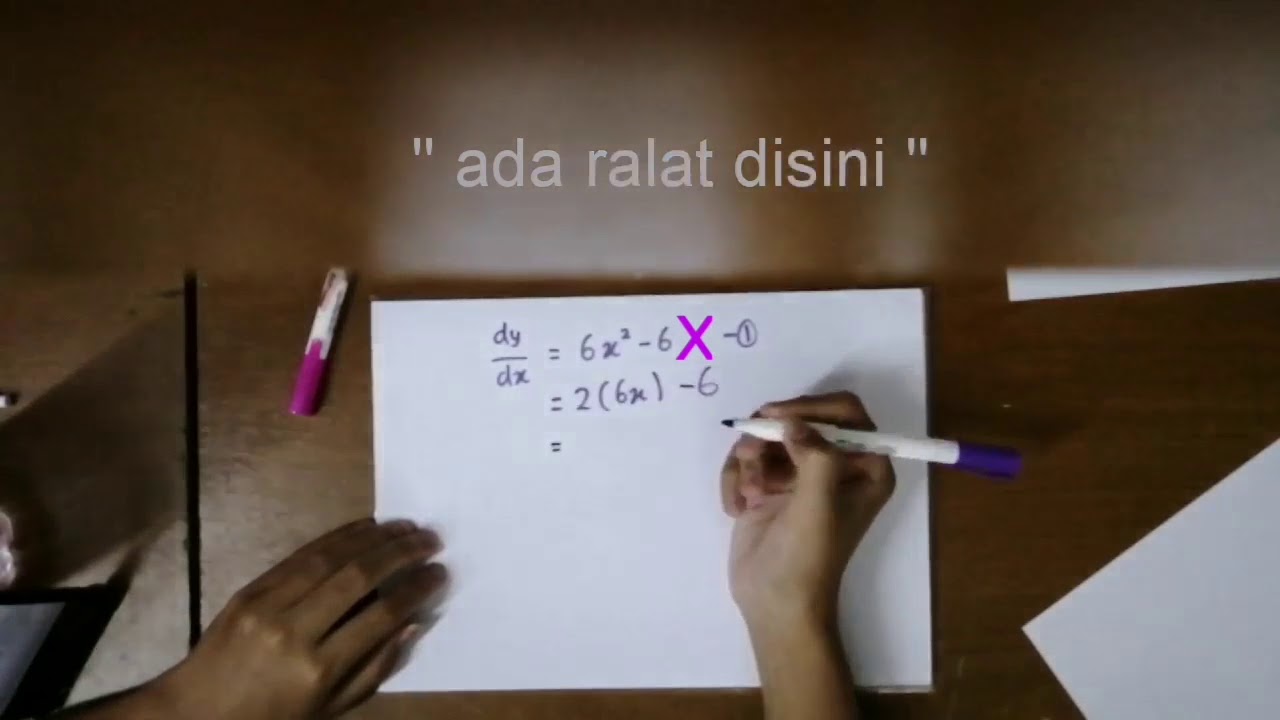 " ada ralat disini "
dy/dx = 6x² - 6X -①
= 2(6x) - 6
=